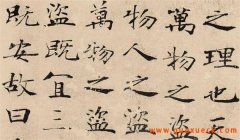 之理也
萬物之盜
物人之盜
萬物之盜
盜既宜
既安故曰